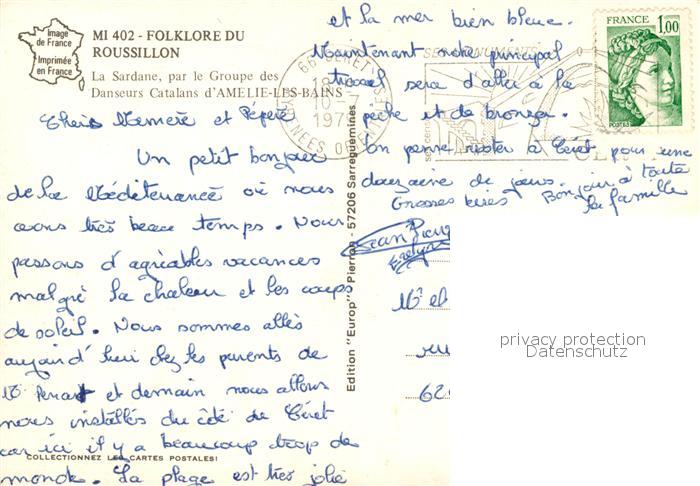 Image
de France
Imprimée
en France
MI 402 - FOLKLORE DU
ROUSSILLON
La Sardane, par le Groupe des
Danseurs Catalans d'AMELIE-LES-BAINS
66 CERET
10-7
1979
FRANCE
1,00
POSTES
Chers Mémère et Pépère
Un petit bonjour
de la Méditerranée où nous
avons très beau temps. Nous
passons d'agréables vacances
malgré la chaleur et les coups
de soleil. Nous sommes allés
aujourd'hui chez les parents de
et demain nous allons
nous installés du côté de Céret
car ici il y a beaucoup trop de
monde. La plage est très jolie
et la mer bien bleue.
Maintenant notre principal
travail sera d'aller à la
pêche et de bronzer.
On pense rester à Céret pour une
douzaine de jours.
Grosses bises Bonjour à toute
la famille
Jean Pierre
Evelyne
COLLECTIONNEZ LES CARTES POSTALES!
Edition "Europ" Pierron - 57206 Sarreguemines
M et
62
privacy protection
Datenschutz